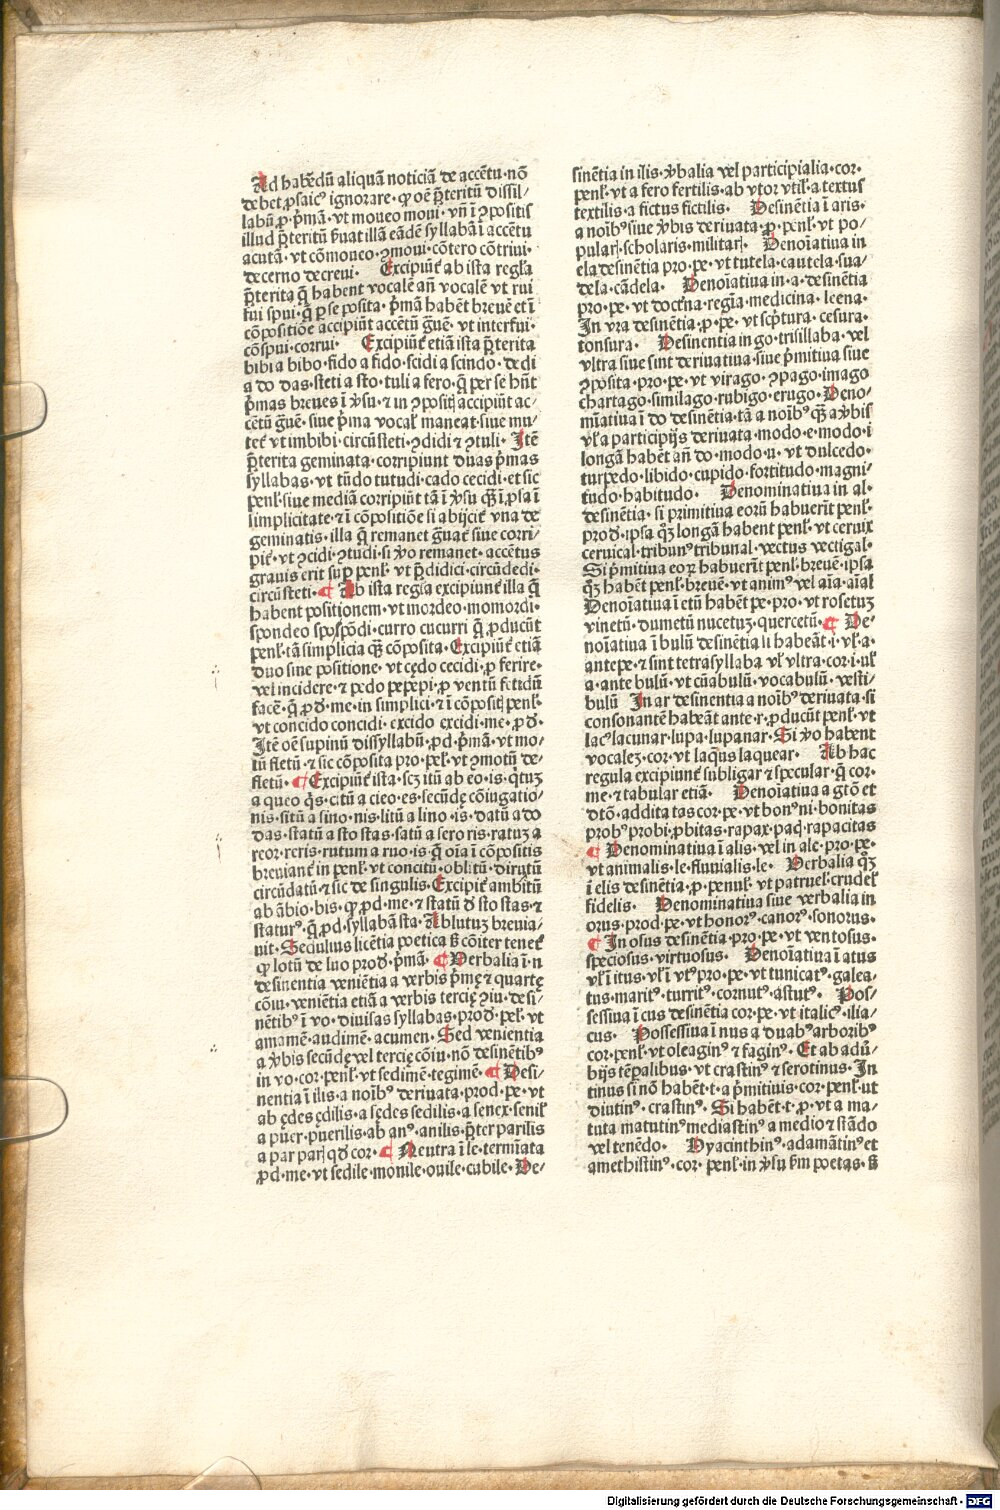 Ad habēdū aliquā noticiā de accētu·nō
debet ꝓsaicꝰ ignorare·ꝙ oē p̄teritū dissil⸗
labū ꝓ·p̄mā·vt moueo moui·vn̄ i ꝯpositis
illud p̄teritū ẜuat illā eādē syllabā i accētu
acutā·vt cōmoueo·ꝯmoui·cōtero cōtriui·
decerno decreui· Excipiūt᷑ ab ista regl̄a
p̄terita q̄ habent vocalē an̄ vocalē vt rui
fui spui·q̄ ꝑ se posita·p̄mā habēt breuē et ī
cōpositiōe accipiūt accētū ḡuē·vt interfui·
cōspui·corrui· Excipiūt᷑ etiā ista p̄terita
bibi a bibo·fido a fido·scidi a scindo·dedi
a do das·steti a sto·tuli a fero·q̄ per se hn̄t
p̄mas breues i ꝟsu·⁊ in ꝯpositꝭ accipiūt ac⸗
cētū ḡuē·siue p̄ma vocal̓ maneat·siue mu⸗
tet᷑ vt imbibi·circūsteti·ꝯdidi ⁊ ꝯtuli· Itē
p̄terita geminata·corripiunt duas p̄mas
syllabas·vt tūdo tutudi·cado cecidi·et sic
penl̓·siue mediā corripiūt tā i ꝟsu q̄ꝫ i ꝓsa ī
simplicitate·⁊ i cōpositiōe si abijcit᷑ vna de
geminatis·illa q̄ remanet ḡuat᷑ siue corri⸗
pit᷑·vt ꝯcidi ꝯtudi·si ꝟo remanet·accētus
grauis erit suꝑ penl̓·vt p̄didici·circūdedi·
circūsteti· Ab ista regl̄a excipiunt᷑ illa q̄
habent positionem·vt mordeo momordi·
spondeo spospōdi·curro cucurri q̄ ꝓducūt
penl̓·tā simplicia q̄ꝫ cōposita·Excipiūt᷑ etiā
duo sine positione·vt cędo cecidi·ꝓ ferire·
vel incidere·⁊ pedo pepepi·ꝓ ventū fetidū
facē·q̄ ꝓd·me·in simplici·⁊ i cōpositꝭ penl̓·
vt concido concidi·excido excidi·me·ꝓd·
Itē oē supinū dissyllabū·ꝓd·p̄mā·vt mo⸗
tū fletū·⁊ sic cōposita pro·pel̓·vt ꝯmotū de⸗
fletū· Excipiūt᷑ ista·scꝫ itū ab eo·is·q̄tuꝫ
a queo q̄s·citū a cieo·es·secūdę cōiugatio⸗
nis·sitū a sino·nis·litū a lino·is·datū a do
das·statū a sto stas·satū a sero ris·ratuꝫ a
reor·reris·rutum a ruo·is·q̄ oīa i cōpositis
breuiant᷑ in penl̓·vt concitū·oblitū·dirutū
circūdatū·⁊ sic de singulis·Excipit᷑ ambitū
ab ābio·bis·q̄ ꝓd·me·⁊ statū d̄ sto stas·⁊
staturꝰ·q̄ ꝓd·syllabā sta·Ablutuꝫ breuia⸗
uit·Seculius licētia poetica ꝫ cōiter tenet᷑
ꝙ lotū de luo prod·p̄mā· Uerbalia i·n
desinentia veniētia a verbis p̄mę ⁊ quartę
cōiu·veniētia etiā a verbis tercię ꝯiu·desi⸗
nētibꝰ i vo·diuisas syllabas·prod·pel̓·vt
amamē·audimē·acumen·Sed venientia
a ꝟbis secūdę vel tercię cōiu·nō desinētibꝰ
in vo·cor·penl̓·vt sedimē·tegimē· Desi⸗
nentia i ilis·a noībꝰ deriuata·prod·pe·vt
ab ędes ędilis·a sędes sedilis·a senex·senil̓
a puer·puerilis·ab anꝰ·anilis·p̄ter parilis
a par parꝭ qd̄ cor· Neutra i le·termīata
ꝓd·me·vt sedile·monile·ouile·cubile·De⸗
sinētia in ilis·ꝟbalia vel participialia·cor·
penl̓·vt a fero fertilis·ab vtor vtil̓·a textus
textilis·a fictus fictilis· Desinētia i aris·
a noībꝰ siue ꝟbis deriuata·ꝓ·penl̓·vt po⸗
pularꝭ·scholaris·militarꝭ· Denoīatiua in
ela desinētia pro·pe·vt tutela·cautela·sua⸗
dela·cādela· Denoīatiua in·a·desinētia
pro·pe·vt doctr̄na·regīa·medicina·leena·
In vra desinētia·ꝓ·pe·vt scp̄tura·cesura·
tonsura· Desinentia in go·trisillaba·vel
vltra siue sint deriuatiua·siue p̄mitiua siue
ꝯposita·pro·pe·vt virago·ꝯpago·imago
chartago·similago·rubigo·erugo·Deno⸗
mīatiua i do desinētia·tā a noībꝰ q̄ꝫ a ꝟbis
vl̓ a participijs deriuata·modo·e·modo·i
longā habēt an̄ do·modo·u·vt dulcedo·
turpedo·libido·cupido·fortitudo·magni⸗
tudo·habitudo· Denominatiua in al·
desinētia·si primitiua eorū habuerīt penl̓·
prod·ipsa q̄ꝫ longā habent penl̓·vt ceruix
ceruical·tribunꝰ tribunal·vectus vectigal·
Si p̄mitiua eoꝝ habuerīt penl̓·breuē·ipsa
q̄ꝫ habēt penl̓·breuē·vt animꝰ vel aīa·aīal
Denoīatiua i etū habēt pe·pro·vt rosetuꝫ
vinetū·dumetū nucetuꝫ·quercetū· De⸗
noīatiua i bulū desinētia si habeāt·i·vl̓·a·
ante pe·⁊ sint tetrasyllaba vl̓ vltra·cor·i·ul̓
a·ante bulū·vt cūabulū·vocabulū·vesti⸗
bulū· In ar desinentia a noībꝰ deriuata·si
consonantē habeāt ante·r·ꝓducūt penl̓·vt
lacꝰ lacunar·lupa·lupanar·Si ꝟo habent
vocaleꝫ·cor·vt laq̄us laquear· Ab hac
regula excipiunt᷑ subligar ⁊ specular·q̄ cor·
me·⁊ tabular etiā· Denoīatiua a gtō et
dtō·addita tas cor·pe·vt bonꝰ ni bonitas
probꝰ probi·ꝓbitas·rapax·paciꝭ rapacitas
Denominatiua i alis·vel in ale·pro·pe·
vt animalis·le·fluuialis·le· Uerbalia q̄ꝫ
i elis desinētia·ꝓ·penul̓·vt patruel̓·crudel̓
fidelis· Denominatiua siue verbalia in
orus·prod·pe·vt honorꝰ·canorꝰ·sonorus·
In osus desinētia·pro·pe·vt ventosus·
speciosus·virtuosus· Denoīatiua i atus
vl̓ i itus·vl̓ i vtꝰ pro·pe·vt tunicatꝰ·galea⸗
tus·maritꝰ·turritꝰ·cornutꝰ·astutꝰ· Pos⸗
sessiua i cus desinētia cor·pe·vt italicꝰ·ilia⸗
cus· Possessiua i nus a duabꝰ arboribꝰ
cor·penl̓·vt oleaginꝰ ⁊ faginꝰ· Et ab adū⸗
bijs tēpalibus·vt crastinꝰ ⁊ serotinus·In
tinus si nō habēt·t·a p̄mitiuis·cor·penl̓·ut
diutinꝰ·crastinꝰ·Si habēt·t·ꝓ·vt a ma⸗
tuta matutinꝰ mediastinꝰ a medio ⁊ stādo
vel tenēdo· Hyacinthinꝰ·adamātinꝰ et
amethistinꝰ·cor·penl̓·in ꝟsu ẜm poetas·ꝫ
Digitalisierung gefördert durch die Deutsche Forschungsgemeinschaft - DFG